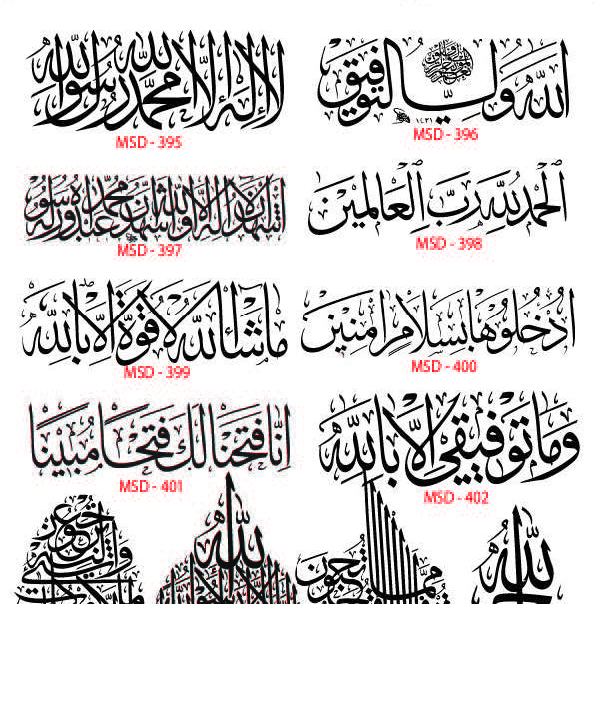 لا اله الا الله محمد رسول الله
MSD - 395
الله ولي التوفيق
١٤٣١
MSD - 396
اشهد ان لا اله الا الله واشهد ان محمدا عبده ورسوله
MSD - 397
الحمد لله رب العالمين
MSD - 398
ما شاء الله لا قوة الا بالله
MSD - 399
ادخلوها بسلام امنين
MSD - 400
انا فتحنا لك فتحا مبينا
MSD - 401
وما توفيقي الا بالله
MSD - 402
الله
مما تحبون
الله